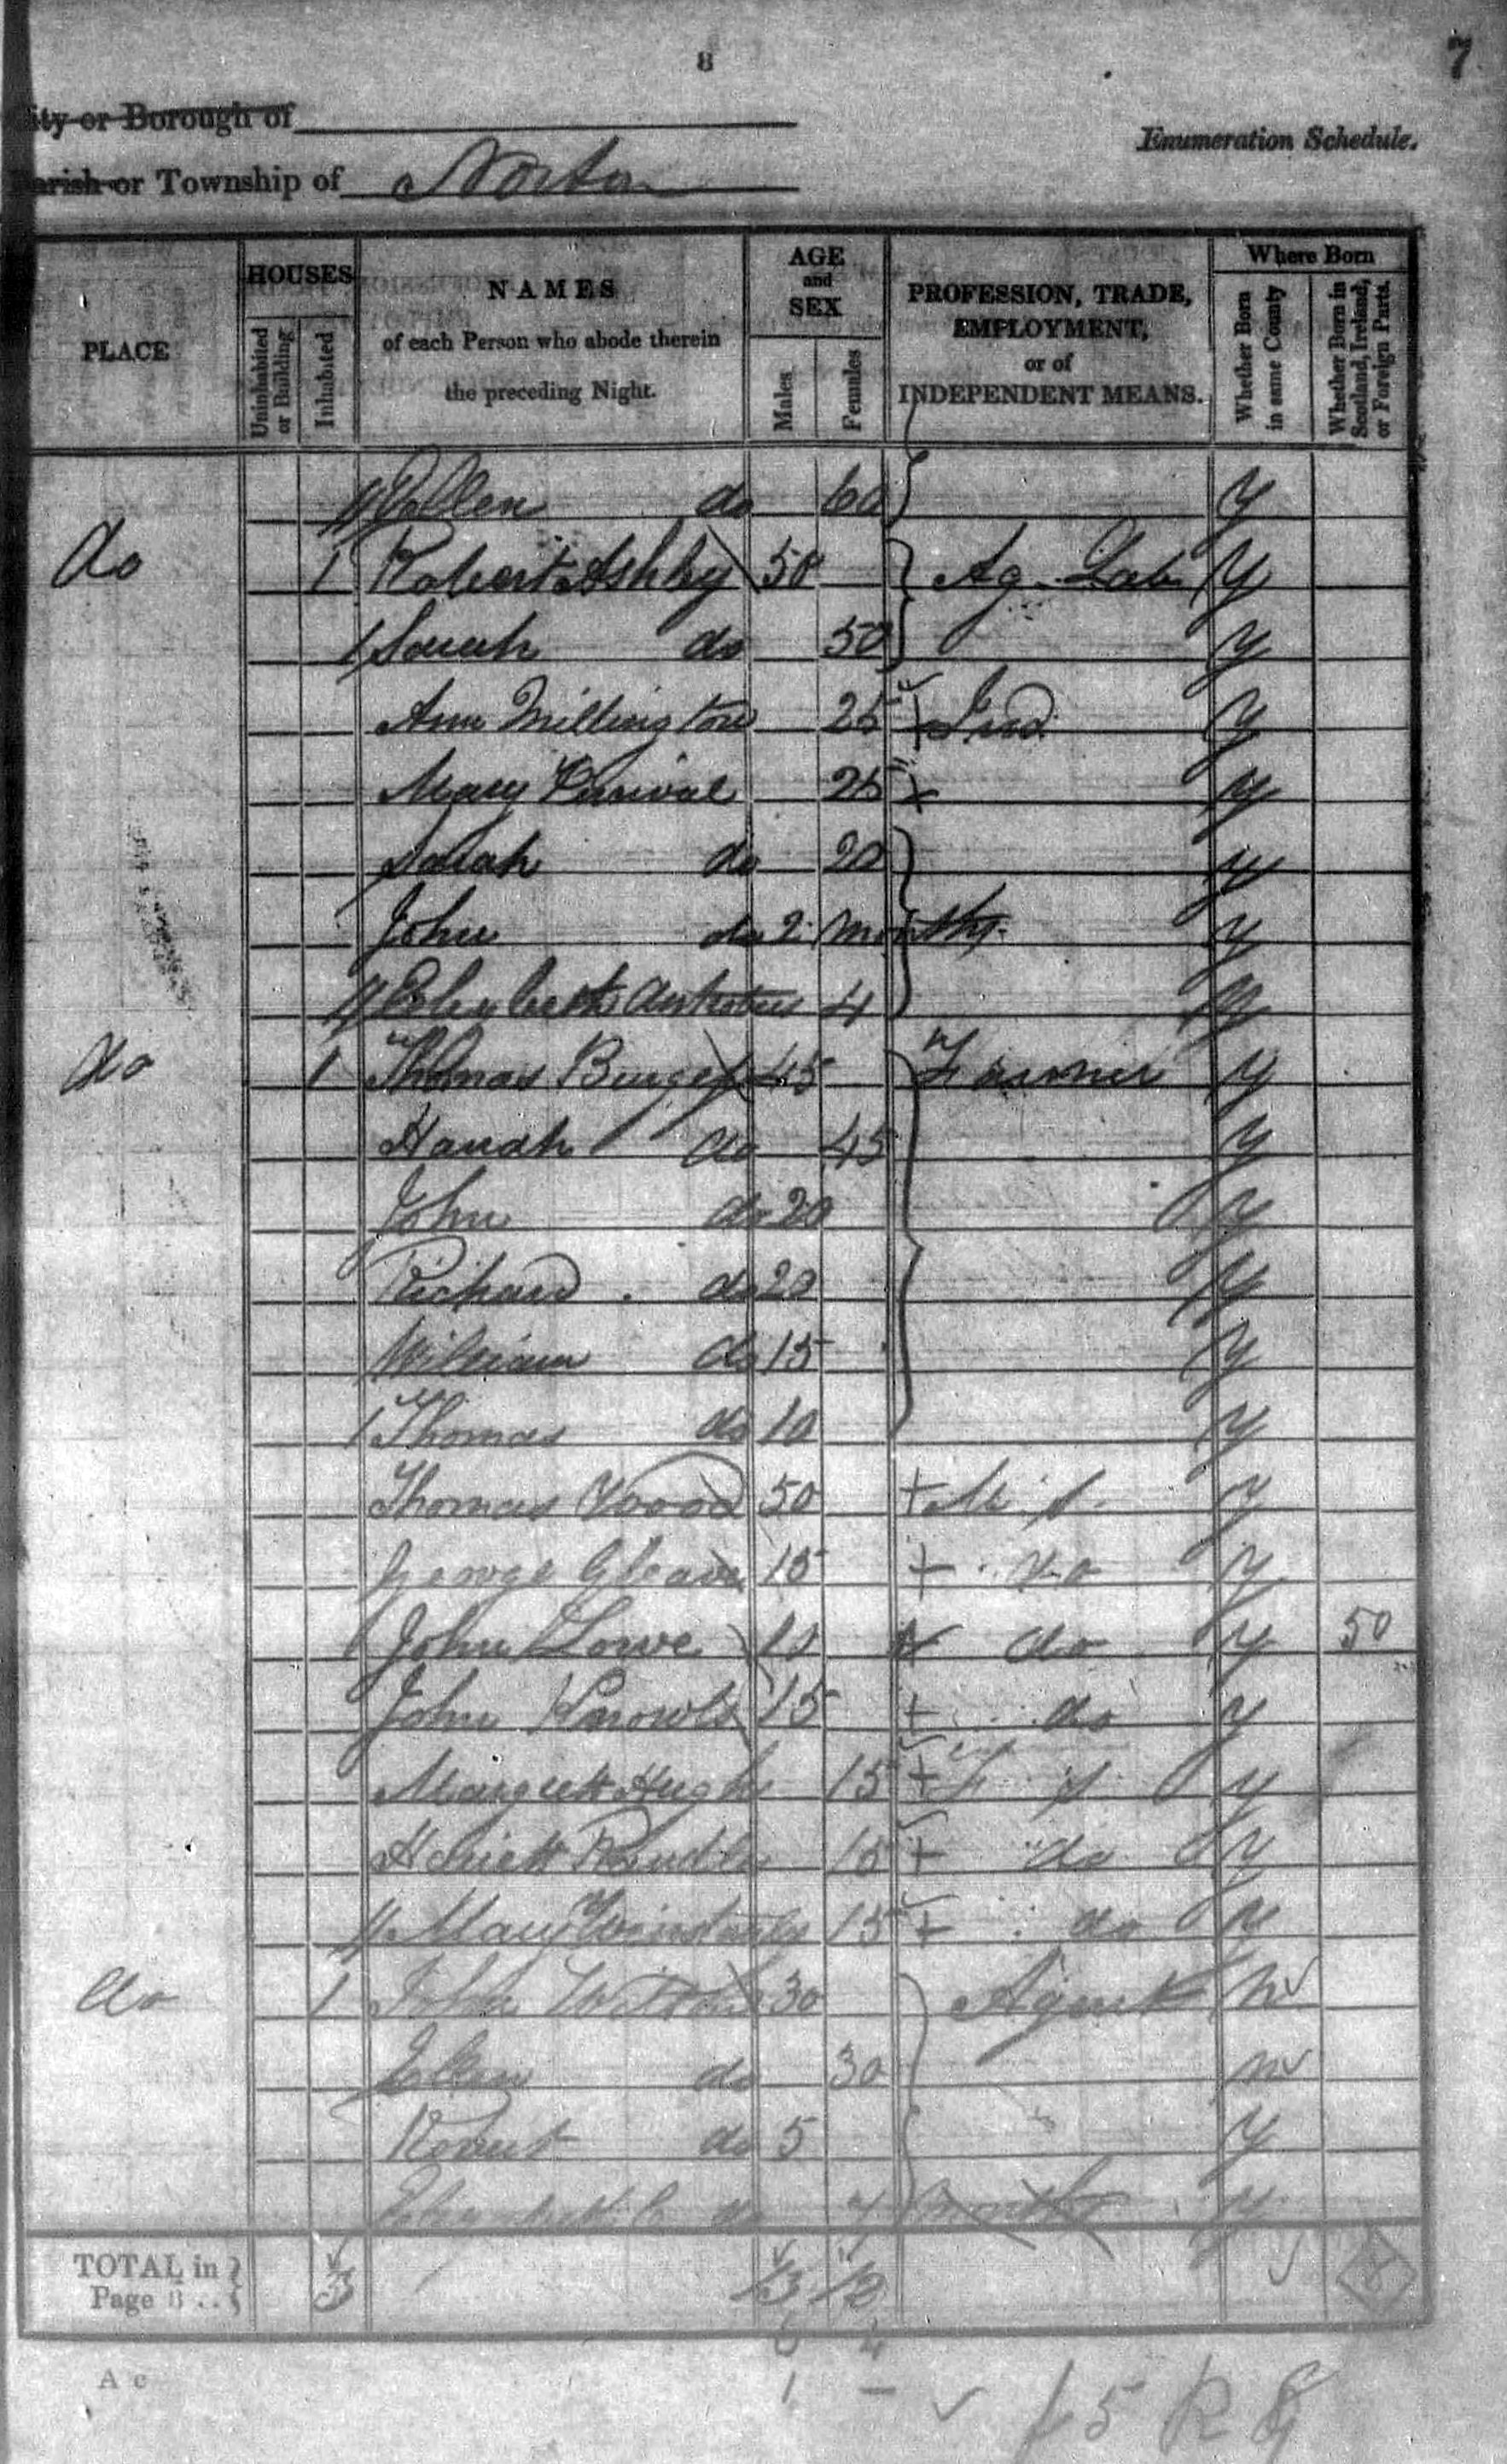 8
7
City or Borough of
Enumeration Schedule.
Parish or Township of Norton
PLACE
HOUSES
Uninhabited or Building
Inhabited
NAMES
of each Person who abode therein
the preceding Night.
AGE
and
SEX
Males
Females
PROFESSION, TRADE,
EMPLOYMENT,
or of
INDEPENDENT MEANS.
Where Born
Whether Born in same County
Whether Born in Scotland, Ireland, or Foreign Parts.
Ellen do 60 y
do 1 Robert Ashby 50 Ag. Lab y
Sarah do 50 y
Ann Millington 25 Ind y
Mary Percival 25 y
Sarah do 20 y
John do 2 months y
Elizabeth 4 y
do 1 Thomas Burgess 45 Farmer y
Hanah do 45 y
John do 20 y
Richard do 20 y
William do 15 y
Thomas do 10 y
Thomas Wood 50 M. S. y
George Gleave 15 do y
John Lowe 10 do y 50
John Knowls 15 do y
Margrett Hugh 15 F S y
Hariett Rudd 15 do y
Mary 15 do y
do 1 John 30 Agent n
Ellen do 30 n
Robert do 5 y
Elizabeth C do 7 months y
TOTAL in
Page 8 ..
3
13 12
8
A c